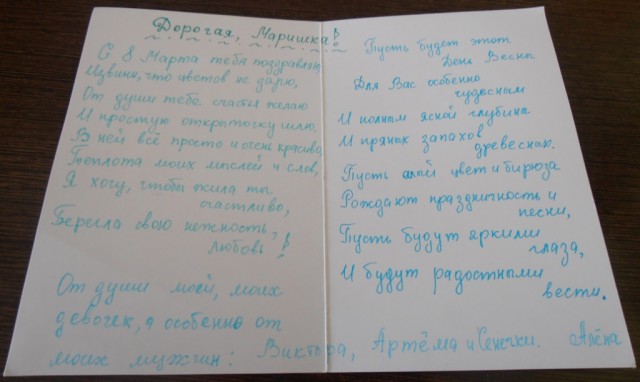 Дорогая, Маришка!
С 8 Марта тебя поздравляю,
Извини, что цветов не дарю,
От души тебе счастья желаю
И простую открыточку шлю.
В ней всё просто и очень красиво,
Теплота моих мыслей и слов,
Я хочу, чтобы жила ты
счастливо,
Берегла свою нежность,
любовь!
От души моей, моих
девочек, а особенно от
моих мужчин: Виктора, Артёма и Сенечки. Алёна
Пусть будет этот
День Весны
Для Вас особенно
чудесным
И полным ясной глубины
И пряных запахов
древесных.
Пусть алый цвет и бирюза
Рождают праздничность и
песни,
Пусть будут яркими
глаза,
И будут радостными
вести.